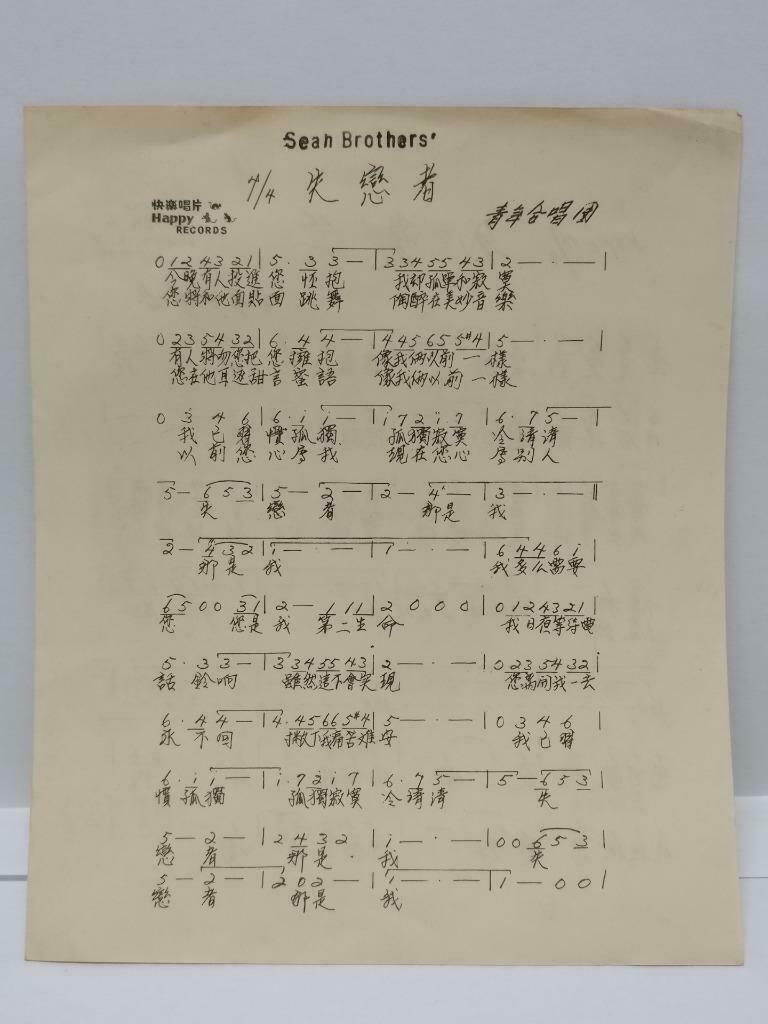 Seah Brothers'
4/4 失戀者
快樂唱片
Happy
RECORDS
青年合唱團
0 1 2 4 3 2 1 | 5 · 3 3 — | 3 3 4 5 5 4 3 | 2 — · — |
今晚有人投進您 怀抱 我却孤單和寂寞
您將和他面貼面 跳舞 陶醉在美妙音樂
0 2 3 5 4 3 2 | 6 · 4 4 — | 4 4 5 6 5 5 #4 | 5 — · — |
有人將吻您把您擁抱 像我俩以前一樣
您在他耳逐甜言蜜語 像我俩以前一樣
0 3 4 6 | 6 · i i — | i 7 2 i 7 | 6 · 7 5 — |
我已習慣孤獨 孤獨寂寞 冷清清
以前您心屬我 現在您心屬别人
5 — 6 5 3 | 5 — 2 — | 2 — 4 — | 3 — · — ‖
失 戀 者 那是 我
2 — 4 3 2 | i — · — | i — · — | 6 4 4 6 i |
那是 我 我多么需要
6 5 0 0 3 1 | 2 — 1 1 1 | 2 0 0 0 | 0 1 2 4 3 2 1 |
您 您是我 第二生命 我日夜等待電
5 · 3 3 — | 3 3 4 5 5 4 3 | 2 — · — | 0 2 3 5 4 3 2 |
話鈴响 雖然這不會实現 您离開我一去
6 · 4 4 — | 4 · 4 5 6 6 5 #4 | 5 — · — | 0 3 4 6 |
永不回 撇下我痛苦难受 我已習
6 · i i — | i · 7 2 i 7 | 6 · 7 5 — | 5 — 6 5 3 |
慣孤獨 孤獨寂寞 冷清清 失
5 — 2 — | 2 4 3 2 | i — · — | 0 0 6 5 3 |
戀 者 那是 · 我 失
5 — 2 — | 2 0 2 — | 1 — · — | 1 — 0 0 |
戀 者 那是 我